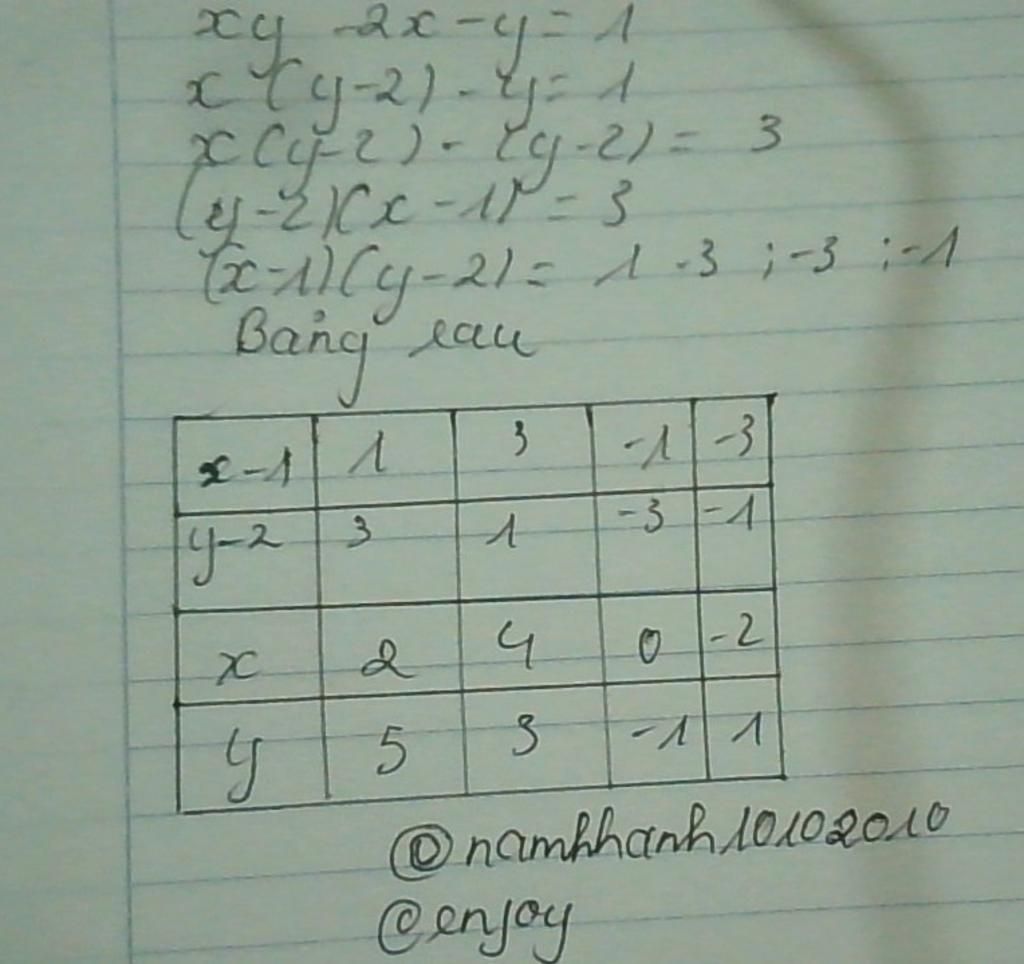 xy -2x - y = 1
x (y-2) - y = 1
x(y-2) - (y-2) = 3
(y-2)(x-1) = 3
(x-1)(y-2) = 1 . 3 ; -3 ; -1
Bảng sau
x-1 1 3 -1 -3
y-2 3 1 -3 -1
x 2 4 0 -2
y 5 3 -1 1
@namkhanh10102010
@enjoy